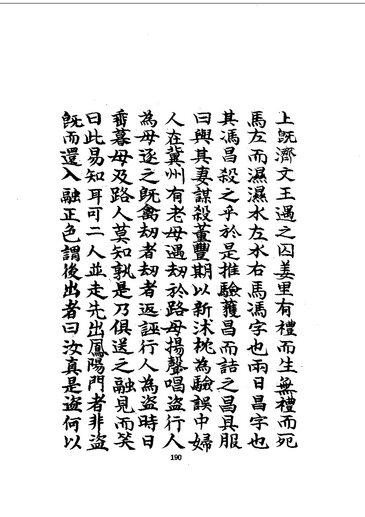 上既濟文王遇之囚羑里有禮而生無禮而死
馬左而濕濕水左水右馬馮字也兩日昌字也
其馮昌殺之乎於是推驗獲昌而詰之昌具服
曰與其妻謀殺董豐期以新沐枕為驗誤中婦
人在冀州有老母遇劫於路母揚聲唱盜行人
為母逐之既禽劫者劫者返誣行人為盜時日
垂暮母及路人莫知孰是乃俱送之融見而笑
曰此易知耳可二人並走先出鳳陽門者非盜
既而還入融正色謂後出者曰汝真是盜何以
190